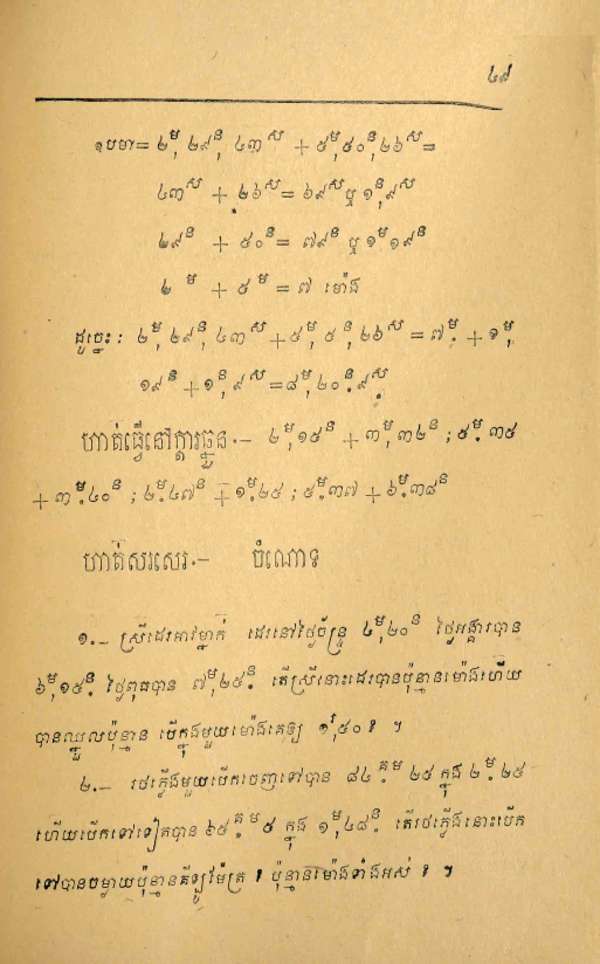 ៤៩
ឧបមា = ២ម៉, ២៩ន, ៤៣ស + ៥ម៉,៥០ន,២៦ស =
៤៣ស + ២៦ស = ៦៩ស ឬ ១ន,៩ស
២៩ន + ៥០ន = ៧៩ន ឬ ១ម៉១៩ន
២ ម៉ + ៥ ម៉ = ៧ ម៉ោង
ដូច្នេះ : ២ម៉, ២៩ន, ៤៣ស + ៥ម៉, ៥ ន, ២៦ស = ៧ម៉. + ១ម៉,
១៩ន + ១ន, ៩ស = ៨ម៉, ២០ន.៩ស.
ហាត់ធ្វើនៅក្តារឆ្នួន.– ២ម៉,១៥ន + ៣ម៉,៣២ន ; ៥ម៉. ៣៥
+ ៣ម៉.៤០ន ; ២ម៉.៤៧ន + ១ម៉.២៥ ; ៥ម៉.៣៧ + ៦ម៉.៣៨ន
ហាត់សរសេរ.– ចំណោទ
១.– ស្រីដេរអាវម្នាក់ ដេរនៅថ្ងៃច័ន្ទ្រ ៤ម៉,២០ន ថ្ងៃអង្គារបាន
៦ម៉,១៥ន. ថ្ងៃពុធបាន ៧ម៉,២៥ន. តើស្រីនោះដេរបានប៉ុន្មានម៉ោងហើយ
បានឈ្នួលប៉ុន្មាន បើក្នុងមួយម៉ោងគេឲ្យ ១រ,៥០ ? ។
២.– រថភ្លើងមួយបើកចេញទៅបាន ៨៤គ.ម ២៥ ក្នុង ២ម៉.២៥
ហើយបើកទៅទៀតបាន ៦៥គ.ម ៥ ក្នុង ១ម៉,៤៨ន. តើរថភ្លើងនោះបើក
ទៅបានចម្ងាយប៉ុន្មានគីឡូម៉ែត្រ ? ប៉ុន្មានម៉ោងទាំងអស់ ? ។